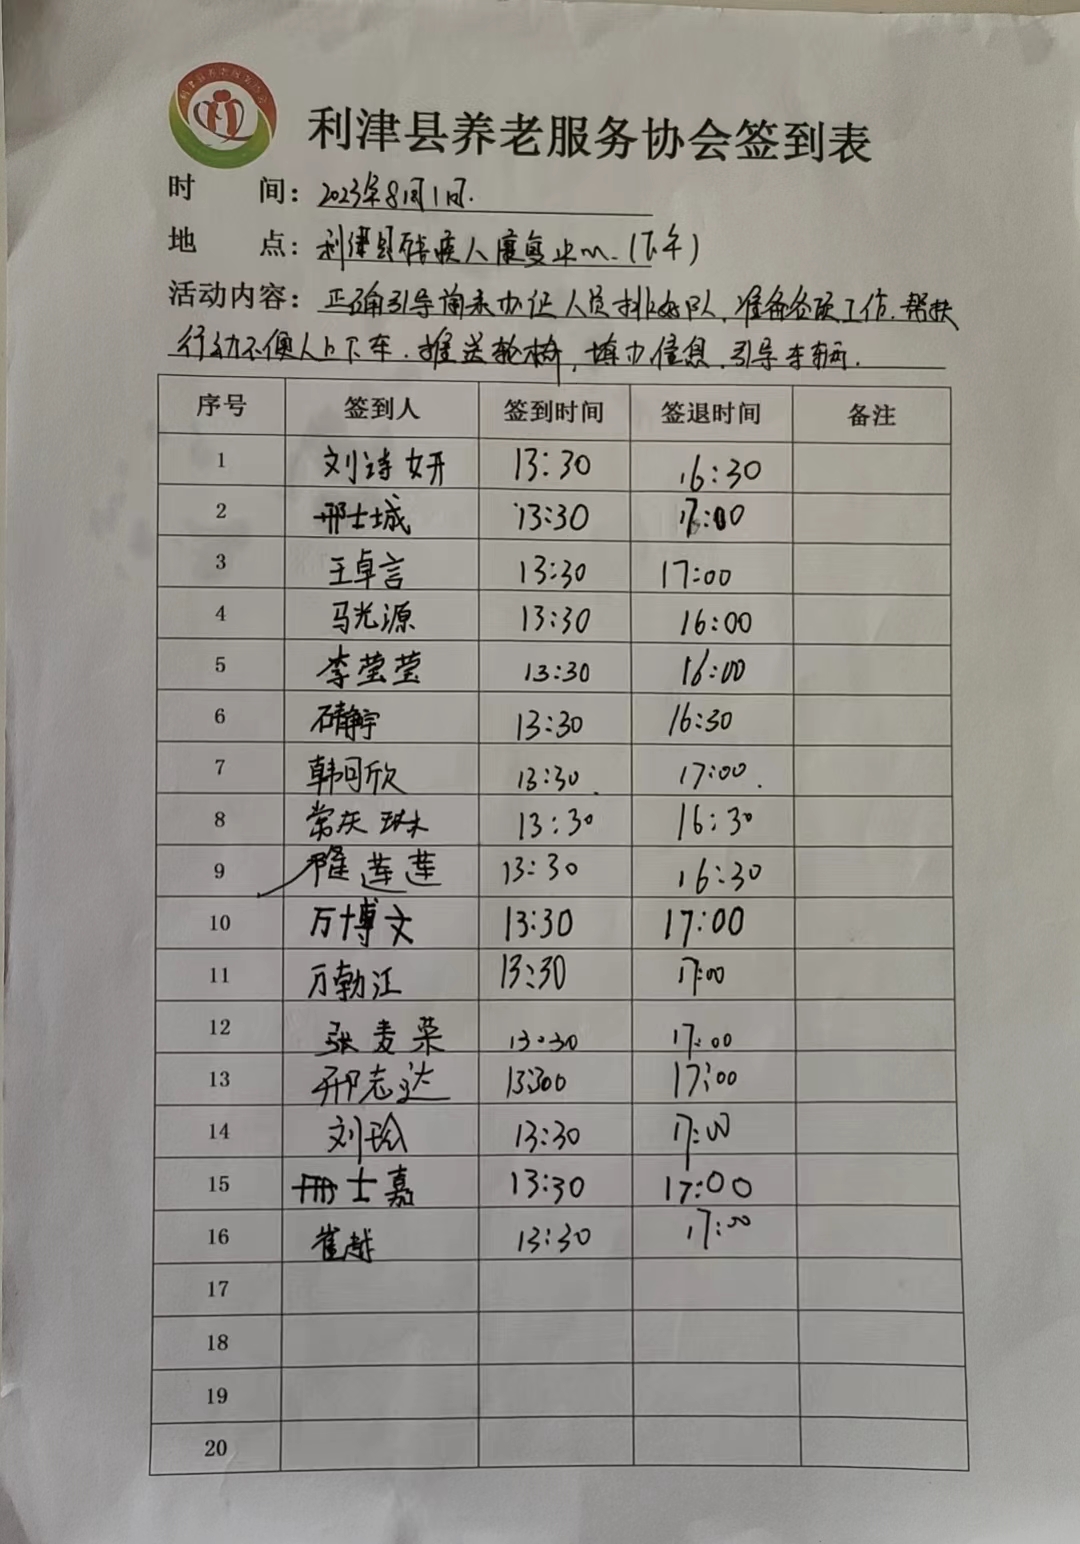 利津县养老服务协会签到表
时 间：2023年8月1日.
地 点：利津县残疾人康复中心.(下午)
活动内容：正确引导前来办证人员排好队,准备各项工作.帮扶
行动不便人上下车.推送轮椅,填办信息.引导车辆.
序号 签到人 签到时间 签退时间 备注
1 刘诗妍 13:30 16:30
2 邢士城 13:30 17:00
3 王卓言 13:30 17:00
4 马光源 13:30 16:00
5 李莹莹 13:30 16:00
6 石静宇 13:30 16:30
7 韩同欣 13:30. 17:00.
8 常庆琳 13:30 16:30
9 莲莲 13:30 16:30
10 万博文 13:30 17:00
11 万勃江 13:30 17:00
12 张麦荣 13:30 17:00
13 邢志达 13:300 17:00
14 刘玲 13:30 17:00
15 邢士嘉 13:30 17:00
16 崔越 13:30 17:00
17
18
19
20